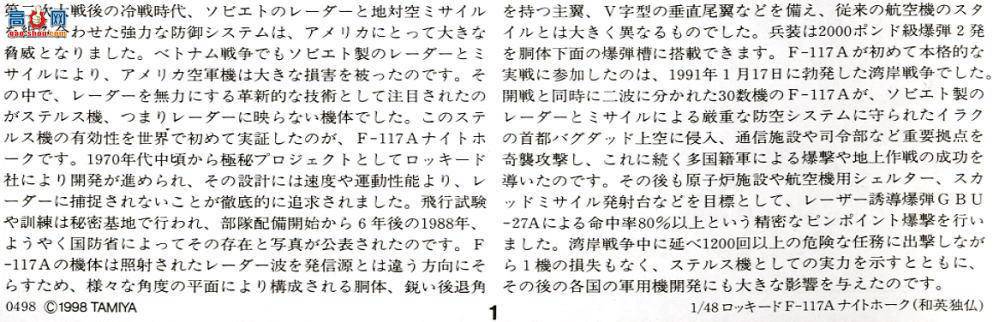 第二次大戦後の冷戦時代、ソビエトのレーダーと地対空ミサイル
わせた強力な防御システムは、アメリカにとって大きな
脅威となりました。ベトナム戦争でもソビエト製のレーダーとミ
サイルにより、アメリカ空軍機は大きな損害を被ったのです。そ
の中で、レーダーを無力にする革新的な技術として注目されたの
がステルス機、つまりレーダーに映らない機体でした。このステ
ルス機の有効性を世界で初めて実証したのが、F-117Aナイトホ
ークです。1970年代中頃から極秘プロジェクトとしてロッキード
社により開発が進められ、その設計には速度や運動性能より、レ
ーダーに捕捉されないことが徹底的に追求されました。飛行試験
や訓練は秘密基地で行われ、部隊配備開始から6年後の1988年、
ようやく国防省によってその存在と写真が公表されたのです。F
-117Aの機体は照射されたレーダー波を発信源とは違う方向にそ
らすため、様々な角度の平面により構成される胴体、鋭い後退角
を持つ主翼、V字型の垂直尾翼などを備え、従来の航空機のスタ
イルとは大きく異なるものでした。兵装は2000ポンド級爆弾2発
を胴体下面の爆弾槽に搭載できます。F-117Aが初めて本格的な
実戦に参加したのは、1991年1月17日に勃発した湾岸戦争でした。
開戦と同時に二波に分かれた30数機のF-117Aが、ソビエト製の
レーダーとミサイルによる厳重な防空システムに守られたイラク
の首都バグダッド上空に侵入、通信施設や司令部など重要拠点を
奇襲攻撃し、これに続く多国籍軍による爆撃や地上作戦の成功を
導いたのです。その後も原子炉施設や航空機用シェルター、スカ
ッドミサイル発射台などを目標として、レーザー誘導爆弾GBU
-27Aによる命中率80%以上という精密なピンポイント爆撃を行い
ました。湾岸戦争中に延べ1200回以上の危険な任務に出撃しなが
ら1機の損失もなく、ステルス機としての実力を示すとともに、
その後の各国の軍用機開発にも大きな影響を与えたのです。
0498 ©1998 TAMIYA
1
1/48 ロッキードF-117A ナイトホーク(和英独仏)